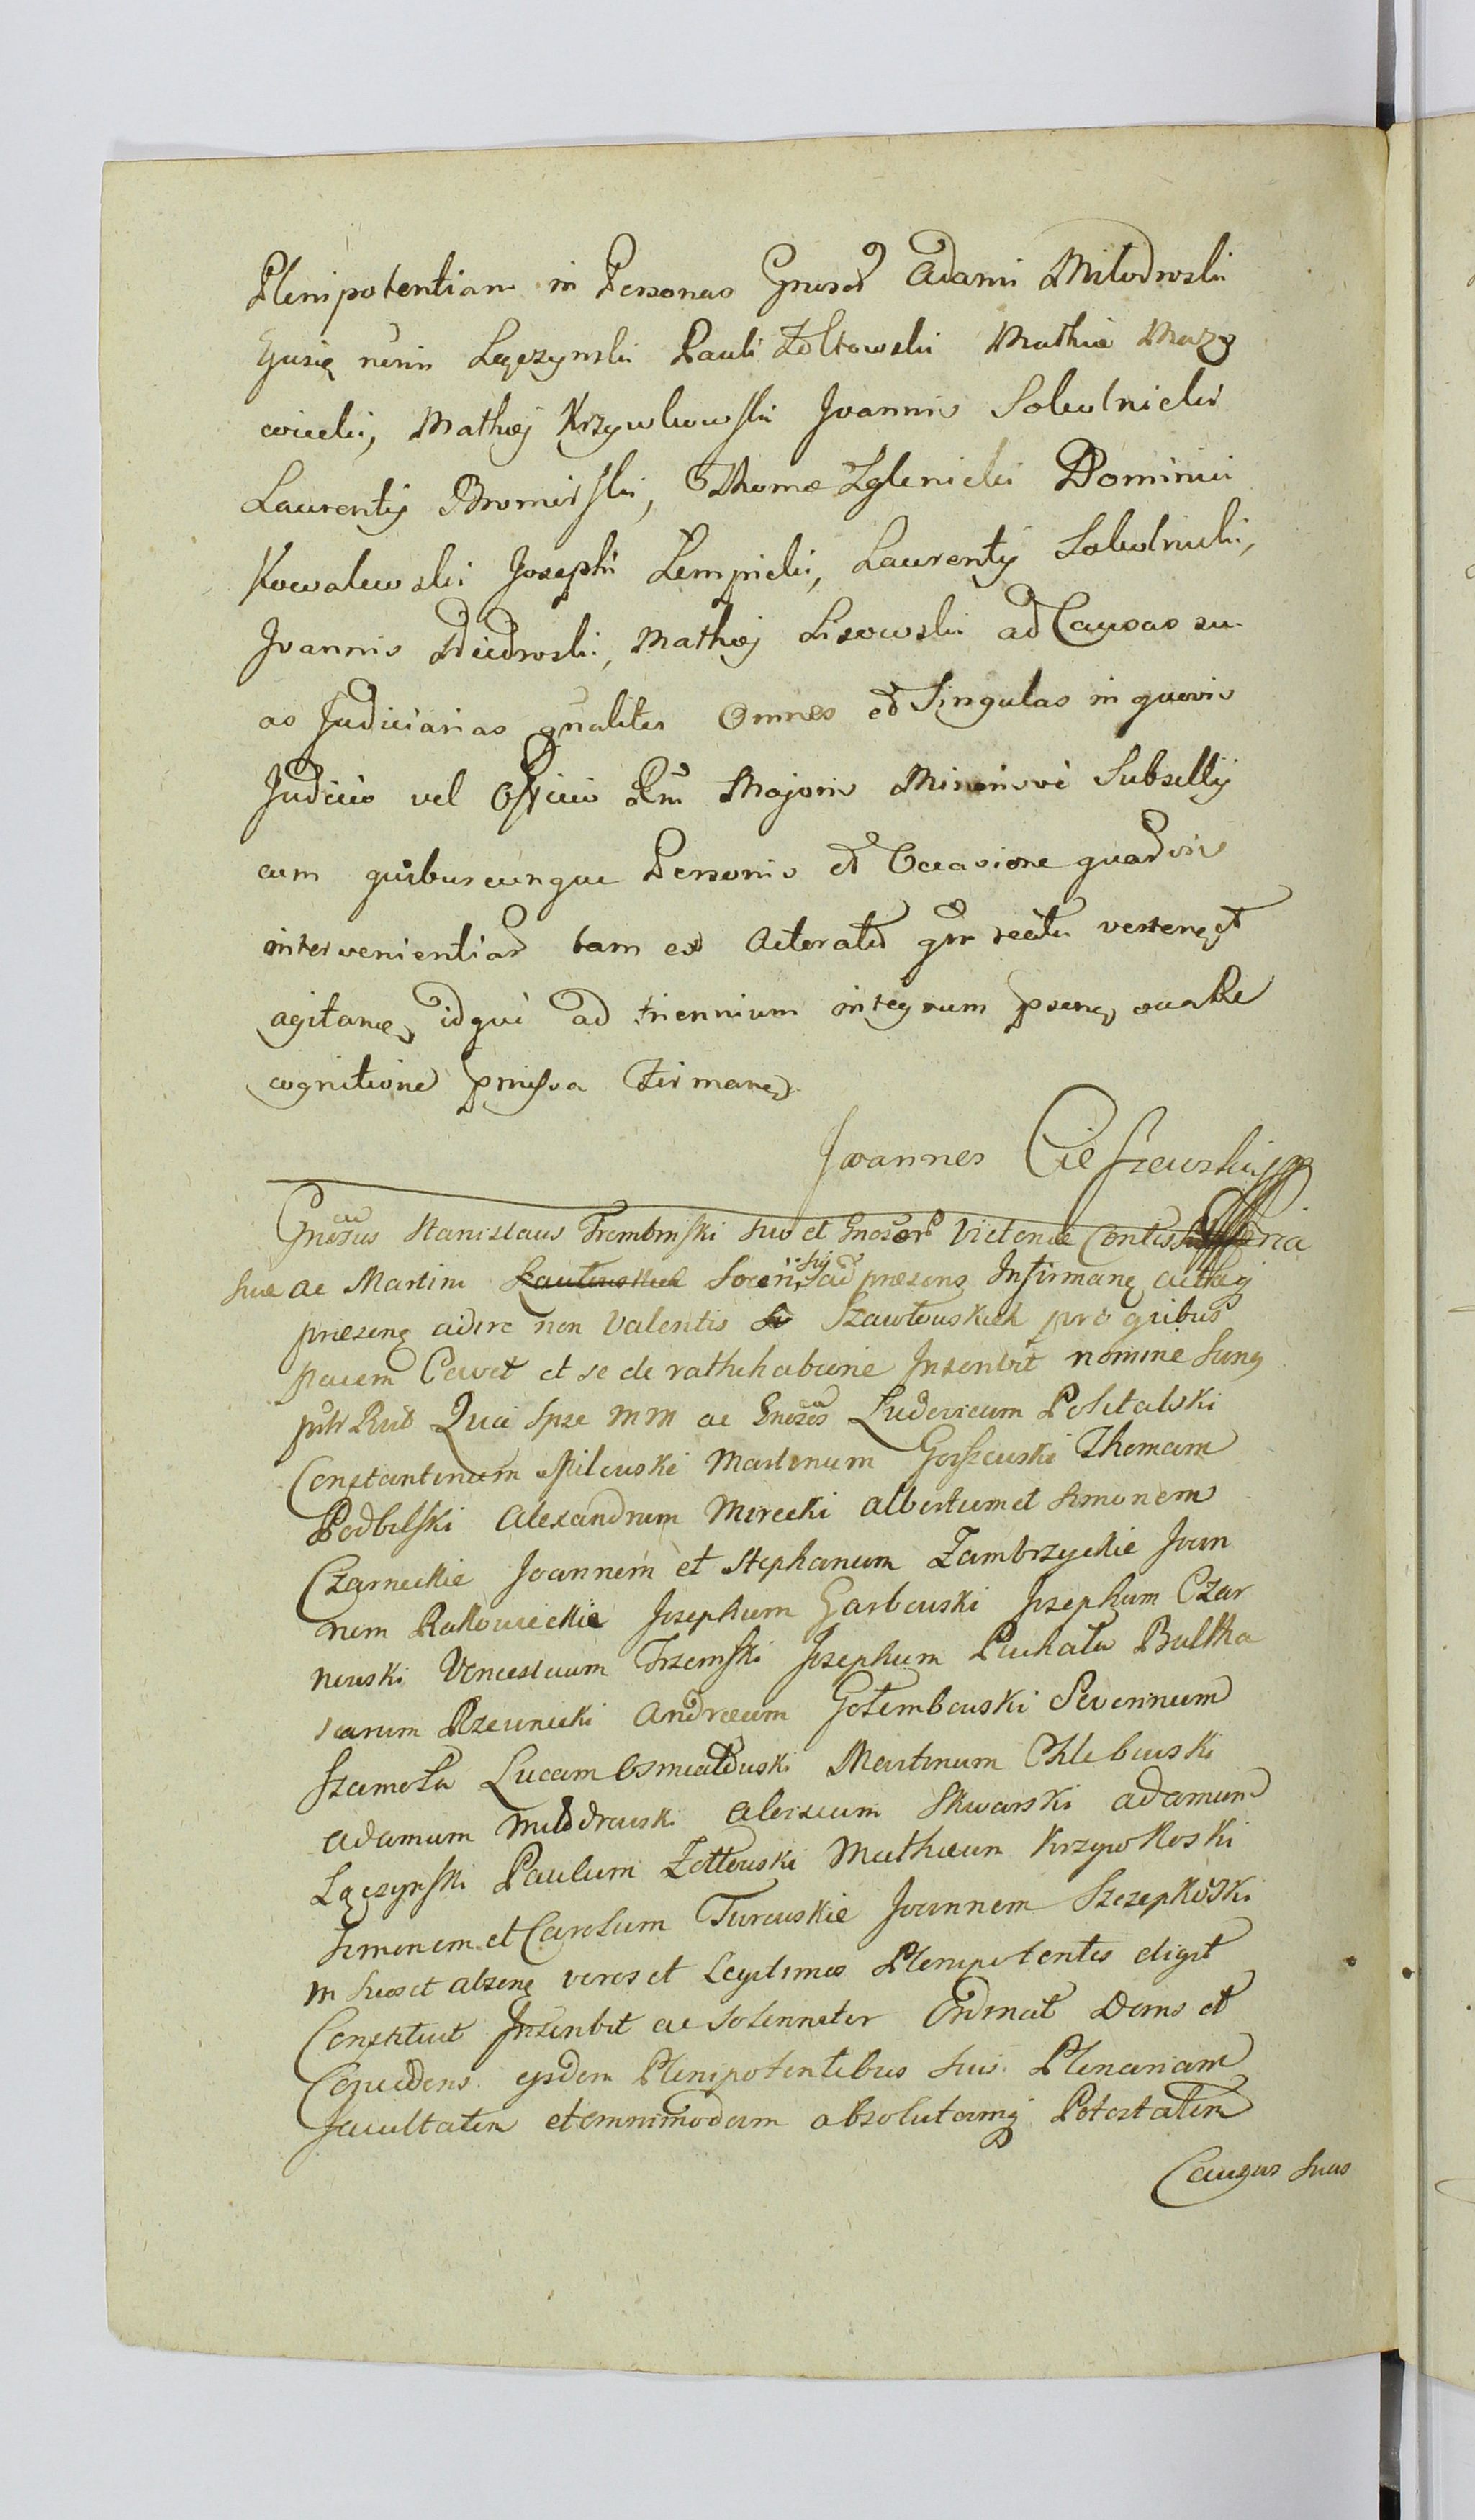 Plenipotentiam in Personas Gnrosor Adami Miłodroski
Ejusdę nōnis Lęczynski Pauli Zołtowski Mathiæ Mazo
wiecki, Mathæj Krzywkowski Joannis Sokolnicki
Laurentij Bromirski, Thomæ Zglenicki Dominici
Kowalewski Josephi Lempicki, Laurentij Sokolnicki,
Joannis Dziedroski, Mathæj Lisowski ad Causas su
as Judiciarias gnaliter Omnes et Singulas in quovis
Judicio vel Officio Rni Majoris Minorisve Subsellij
cum quibuscunque Personis et Occasione quadvis
intervenientiad tam ex Actoratu qm reatu verten et
agitan idque ad triennium integrum psens suaRe
cognitione pmissa firman
Joannes Cieszewski
Gnosus Stanislaus Trembinski suo et Gnosor Victoriæ Contis
suæ ac Martini Socri sui ad præsens Infirman acta
præsens adire non Valentis Szawłowskich pro quibus
pacem Cavet et se de rathihabitione Inscribit nomine
Quia Ipse MM ac Gnosos Ludovicum Politalski
Constantinum Milewski Martinum Gosszewski Thomam
Podbilski Alexandrum Mirecki Albertum et Simonem
Czarneckie Joannem et Stephanum Zambrzyckie Joan
nem Rakowieckie Josephum Garbowski Josephum Czar
newski Venceslaum Trzemski Josephum Puchała Baltha
sarum Rzewnicki Andreeum Gołembowski Severinum
Szamota Lucam Martinum Chlebowski
Adamum Młodrowski Alexium Skwarski Adamum
Lęczynski Paulum Zołtowski Mathæum Krzywkoski
Simonem et Carolum Turowskie Joannem Szczepkoski
in suos et absens veros et Legitimos Plenipotentes eligit
Constituit Inscribit ac Solenniter Ordinat Dans et
Concedens eysdem Plenipotentibus suis Plenariam
facultatem et omnimodam absolutamq Potestatem
Causas suas